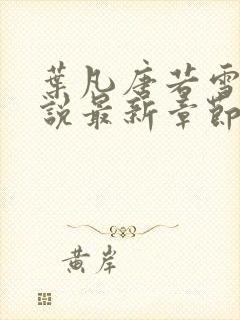 葉凡唐若雪
說最新章節
黃岸